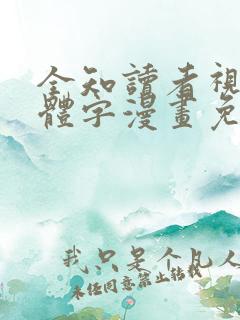 全知讀者視
體字漫畫免
我只是个凡人
未任同意禁止转载